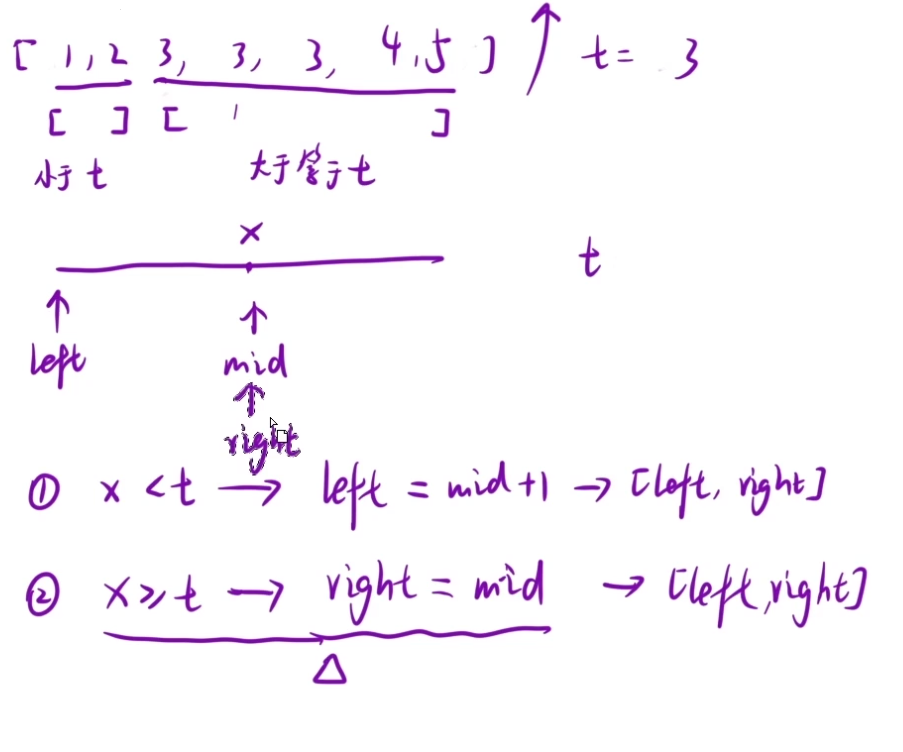 [ 1,2 3, 3, 3, 4,5 ] ↑ t= 3
[ ] [ ]
小于t 大于等于t
x
t
left mid
right
① x<t → left = mid+1 → [left, right]
② x≥t → right = mid → [left,right]
△